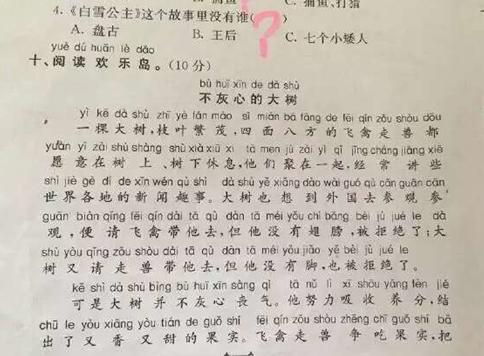 C. 捕鱼、打猎
4.《白雪公主》这个故事里没有谁( )
?
A. 盘古 B. 王后 C. 七个小矮人
yuè dú huān lè dǎo
十、阅读欢乐岛。(10分)
bù huī xīn de dà shù
不灰心的大树
yì kē dà shù zhī yè fán mào sì miàn bā fāng de fēi qín zǒu shòu dōu
一棵大树,枝叶繁茂,四面八方的飞禽走兽都
yuàn yì zài shù shàng shù xià xiū xi tā men jù zài yì qǐ jīng cháng jiǎng xiē
愿意在树上、树下休息,他们聚在一起,经常讲些
shì jiè gè dì de xīn wén qù shì dà shù yě xiǎng dào wài guó qù cān guān cān
世界各地的新闻趣事。大树也想到外国去参观参
guān biàn qǐng fēi qín dài tā qù dàn tā méi yǒu chì bǎng bèi jù jué le dà
观,便请飞禽带他去,但他没有翅膀,被拒绝了;大
shù yòu qǐng zǒu shòu dài tā qù dàn tā méi yǒu jiǎo yě bèi jù jué le
树又请走兽带他去,但他没有脚,也被拒绝了。
kě shì dà shù bìng bù huī xīn sàng qì tā nǔ lì xī shōu yǎng fèn jiē
可是大树并不灰心丧气。他努力吸收养分,结
chū le yòu xiāng yòu tián de guǒ shí fēi qín zǒu shòu zhēng chī guǒ shí bǎ
出了又香又甜的果实。飞禽走兽争吃果实,把